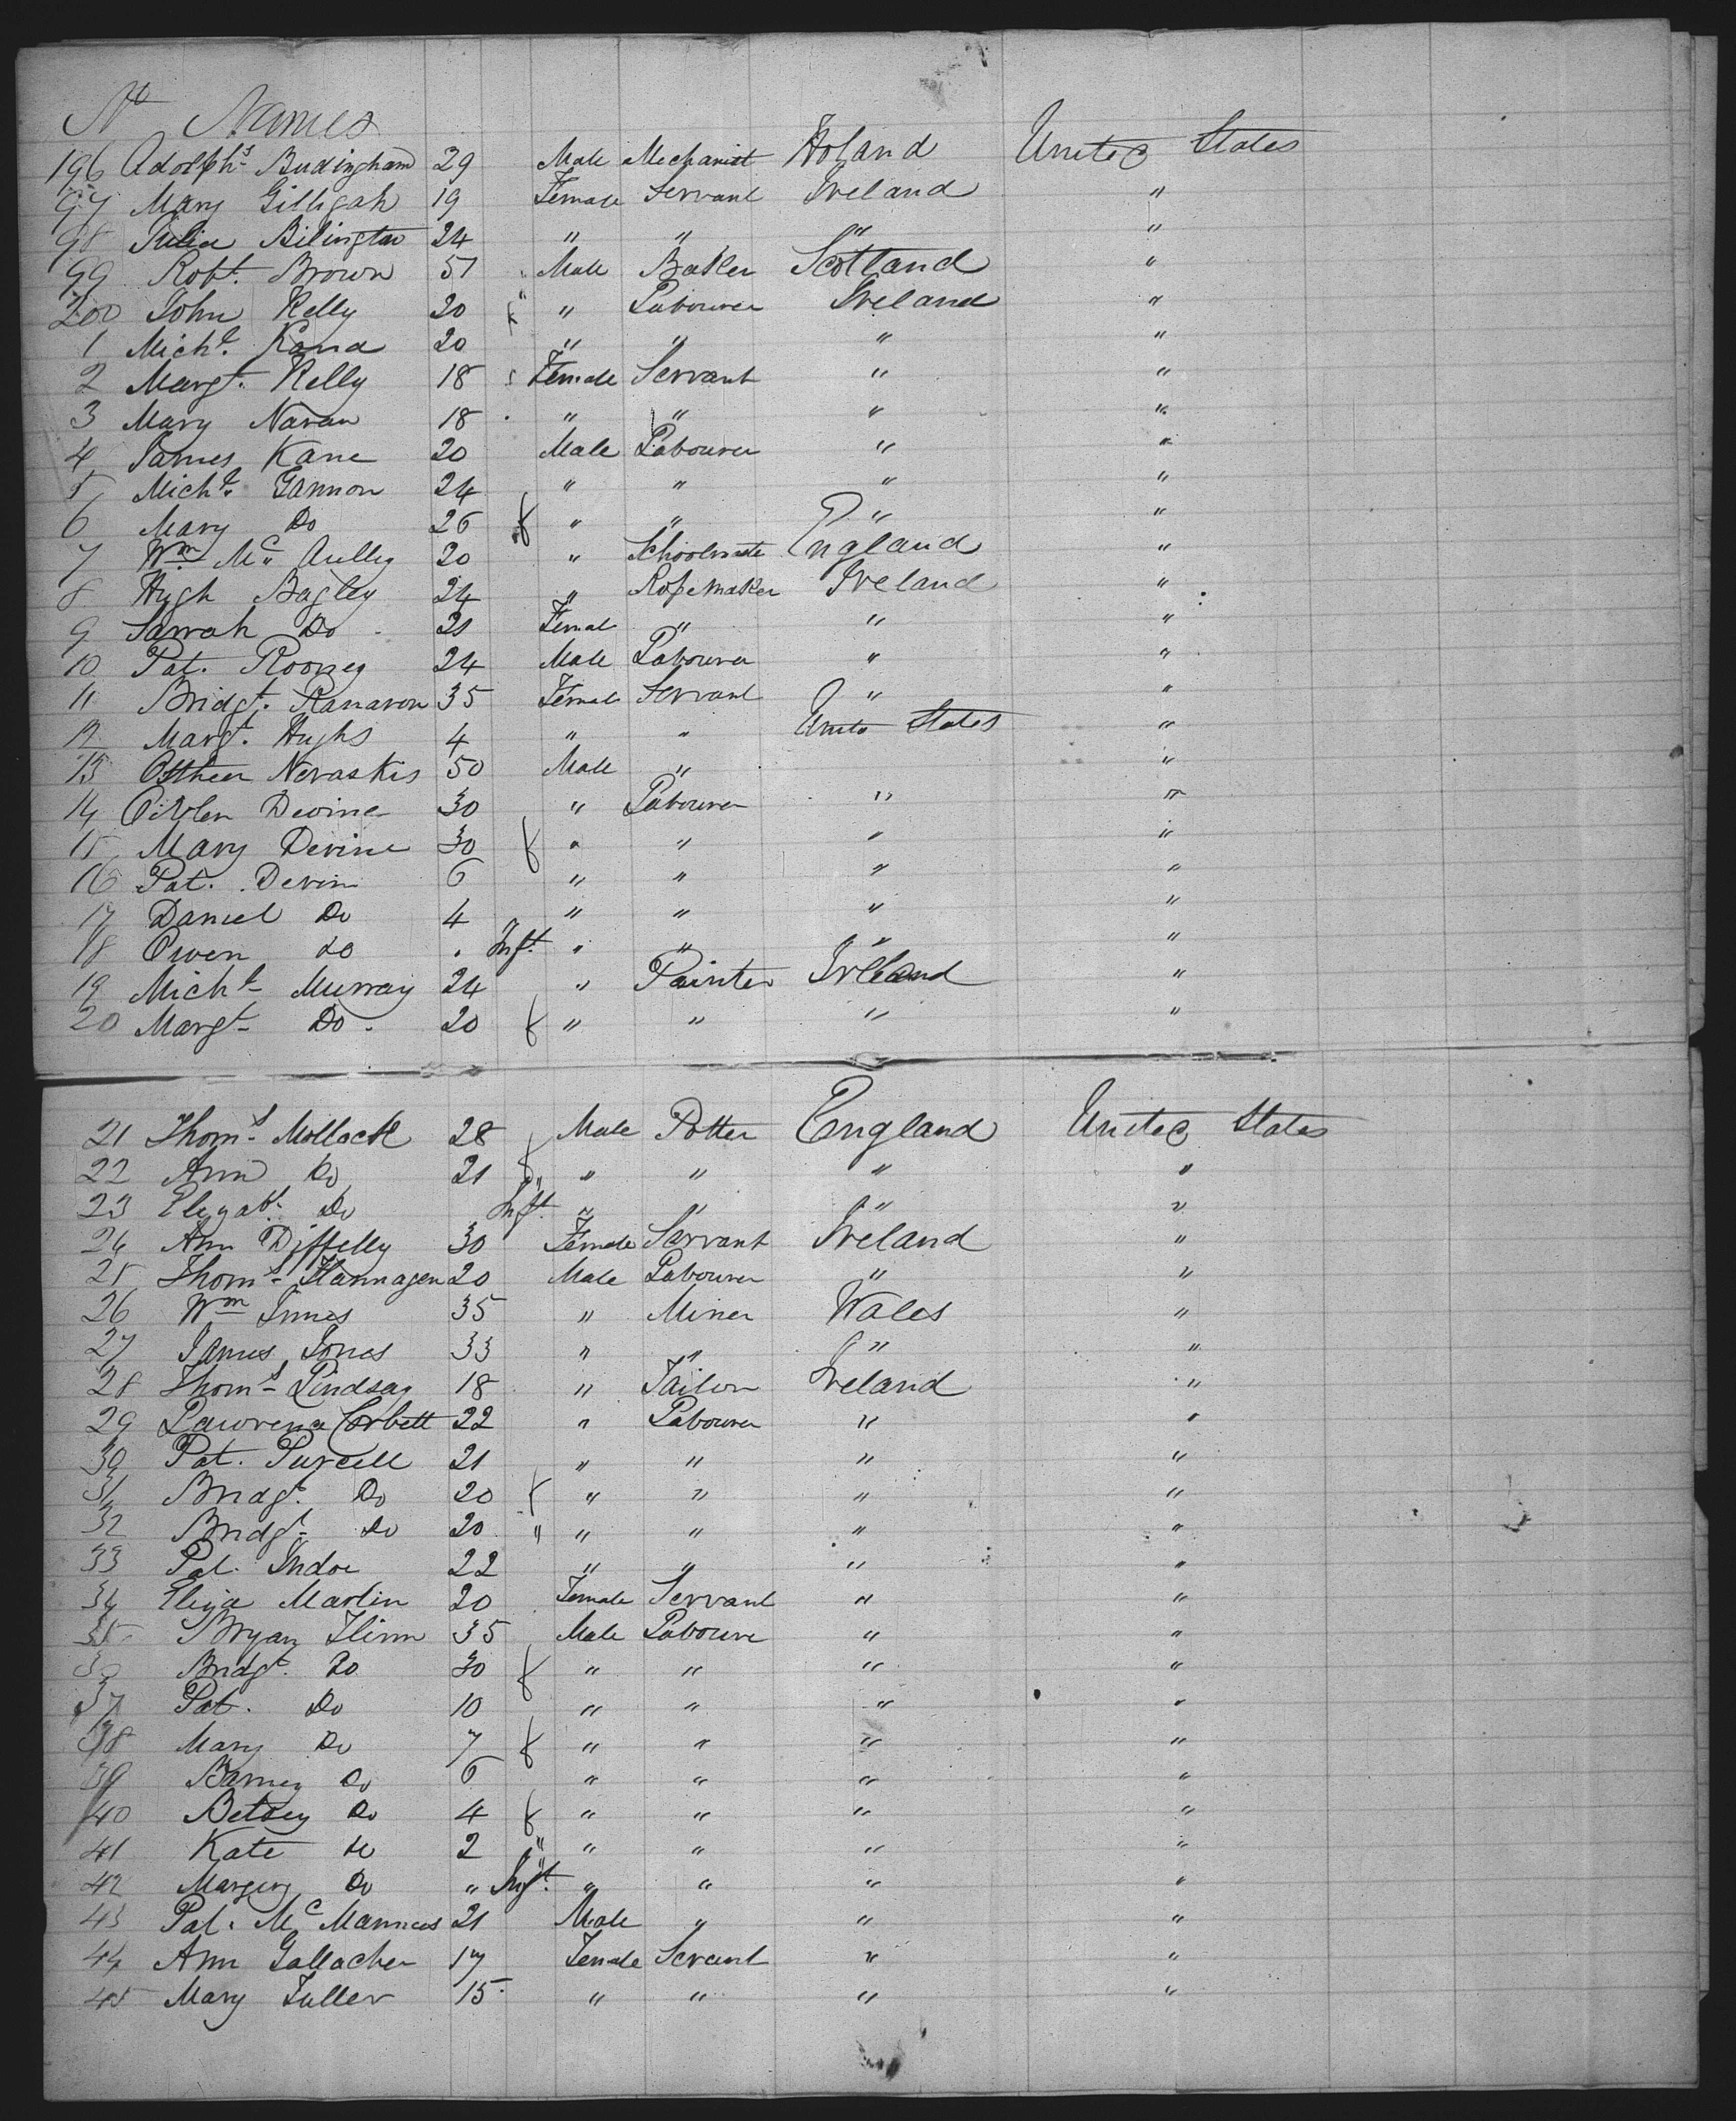 No Names
196 Adolphs Budingham 29 Male Mechanist Holand United States
97 Mary Gilligah 19 Female Servant Ireland "
98 Julia Bilington 24 " " " "
99 Robt. Brown 51 Male Baker Scotland "
200 John Kelly 20 " Labourer Ireland "
1 Michl. Kana 20 " " " "
2 Margt. Kelly 18 Female Servant " "
3 Mary Navan 18 " " " "
4 James Kane 20 Male Labourer " "
5 Michl. Gannon 24 " " " "
6 Mary Do 26 f " " " "
7 Wm Mc Aulley 20 " Schoolmaste England "
8 Hugh Bagley 24 " Ropemaker Ireland "
9 Sarrah Do 21 Femal " " "
10 Pat. Rooney 24 Male Labourer " "
11 Bridgt. Ranavon 35 Female Servant " "
12 Margt. Hughs 4 " " Unite States "
13 Nevaskis 50 Male " "
14 Devine 30 " Labourer " "
15 Mary Devine 30 f " " " "
16 Pat. Devin 6 " " " "
17 Daniel Do 4 " " " "
18 Owen do " Inft. " " " "
19 Michl Murray 24 " Painter Ireland "
20 Margt Do 20 f " " " "
21 Thoms Mollack 28 Male Potter England United States
22 Ann Do 21 f " " " "
23 Elizabt. Do Inft. " " " "
24 Ann Diffelly 30 Female Servant Ireland "
25 Thoms Flannagen 20 Male Labourer " "
26 Wm Innes 35 " Miner Wales "
27 James Jones 33 " " " "
28 Thoms Lindsay 18 " Tailor Ireland "
29 Lawrence Corbett 22 " Labourer " "
30 Pat. Purcell 21 " " " "
31 Bridgt. Do 20 f " " " "
32 Bridgt Do 20 " " " " "
33 Pat. Indoe 22 " " " "
34 Eliza Martin 20 Female Servant " "
35 Bryan Flinn 35 Male Laboure " "
36 Bridgt. Do 30 f " " " "
37 Pat. Do 10 " " " "
38 Mary Do 7 f " " " "
39 Barney Do 6 " " " "
40 Betsey Do 4 f " " " "
41 Kate do 2 " " " " "
42 Margery Do " Inft. " " " "
43 Pat. Mc Mannus 21 Male " " "
44 Ann Gallacher 17 Female Servant " "
45 Mary Fuller 15 " " " "